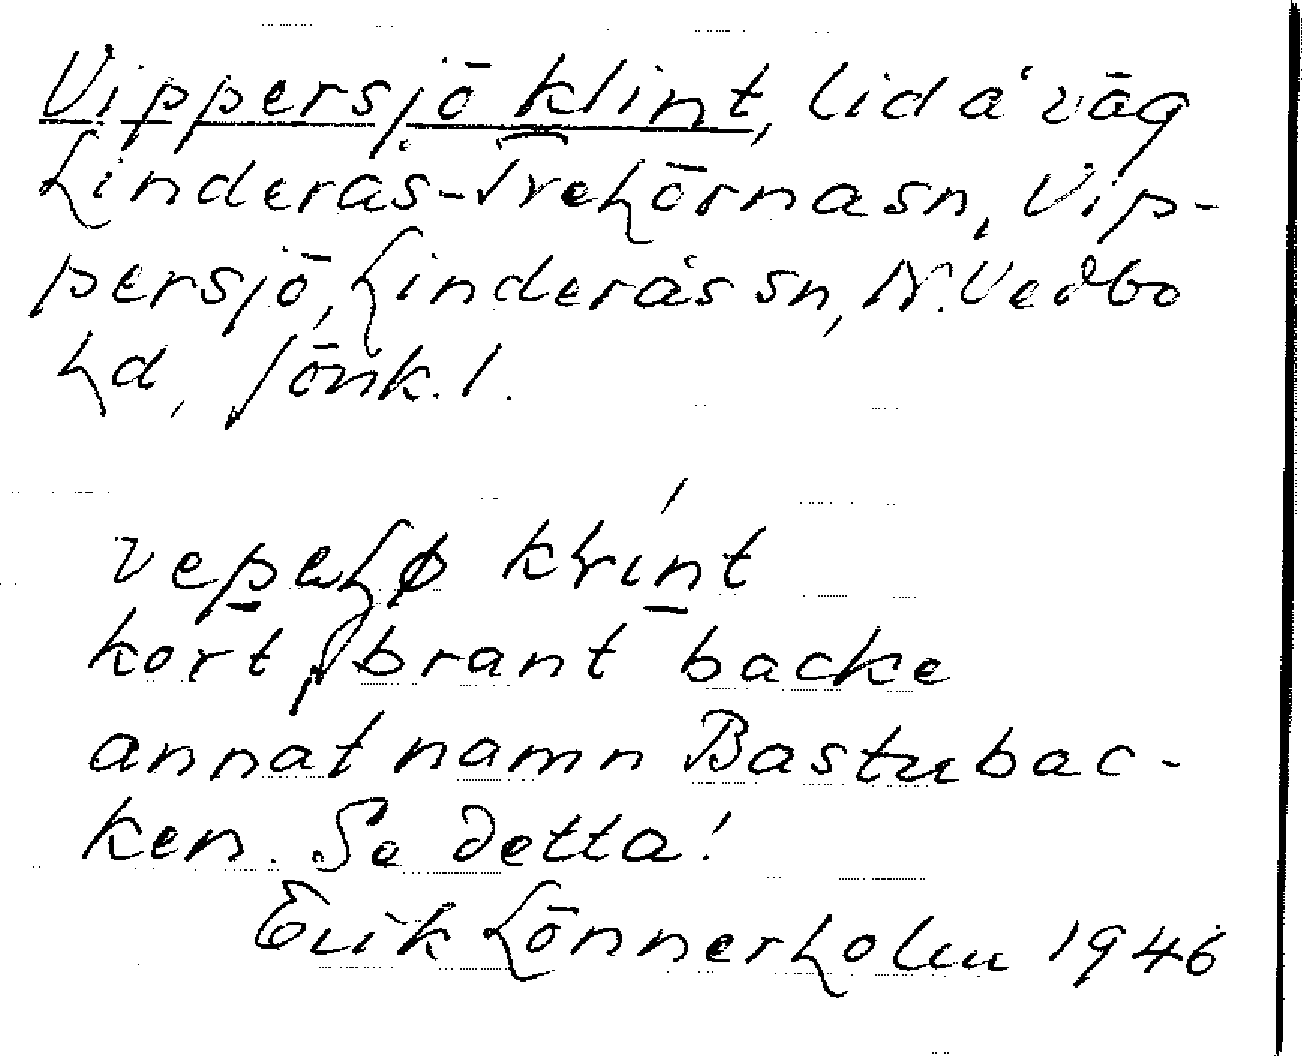 Vippersjö klint, lid å väg
Linderås-Trehörna sn, Vip-
persjö, Linderås sn, N. Vedbo
hd, Jönk. l.
kort, brant backe
annat namn Bastubac-
ken. Se detta!
Erik Lönnerholm 1946